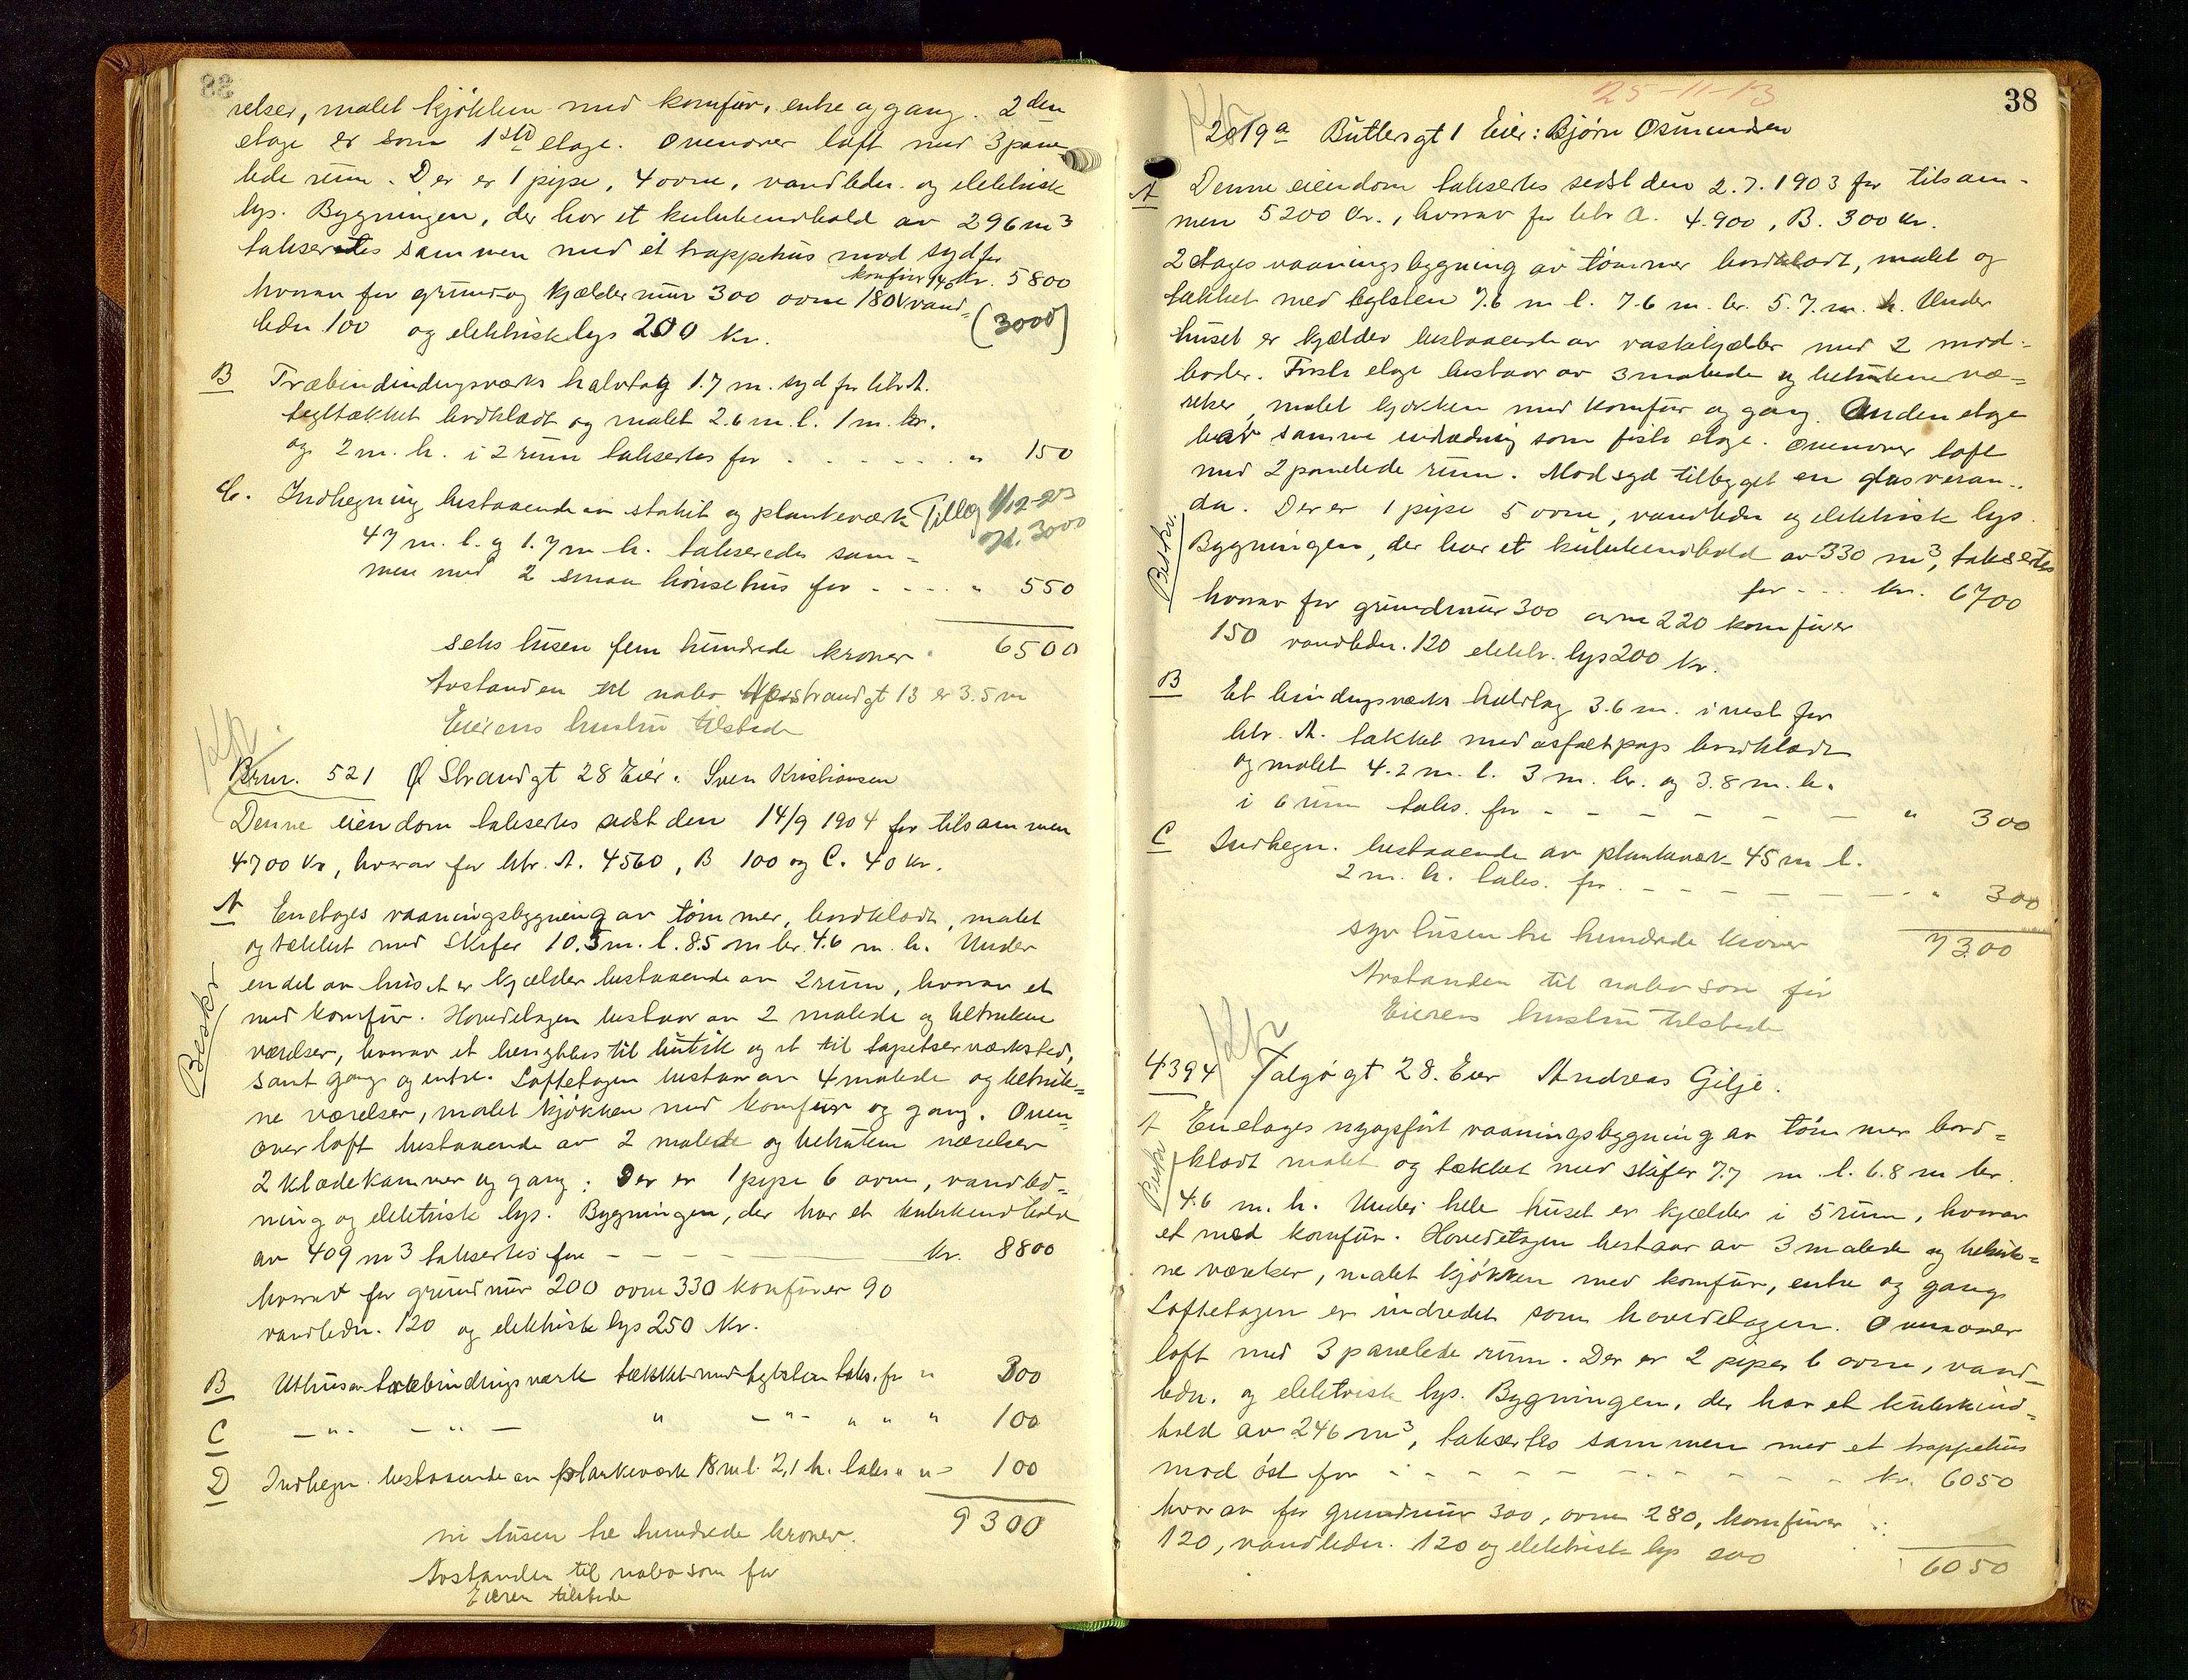 relser, malet kjökken med komfür, entre og gang. 2den
etage er som 1ste etage. Ovenover loft med 3 pane-
lede rüm. Der er 1 pipe, 4 ovne, vandledn. og elektrisk
lys. Bygningen, der har et kubikindhold av 296 m3
taksertes sammen med et trappehüs mod syd for
komfür 140 kr. 5800
hvorav for gründ og kjældermür 300 ovne 180 vand=
ledn. 100 og elektrisk lys 200 Kr. (3000)
B Træbindindingsværks halvtag 1.7 m. syd for litr. A.
tegltækket bordklædt og malet 2.6 m. l. 1 m. br.
og 2 m. h. i 2 rüm taksertes for - - - - - " 150
C. Indhegning bestaaende av stakit og plankeværk Tillæg 1/12-23
47 m. l. og 1.7 m h. takseredes sam= kr. 3000
men med 2 smaa hönsehüs for - - - - " 550
6500
seks tüsen fem hündrede kroner
Avstanden til nabo strandgt 13 er 3.5 m
Eierens hustrü tilstede
Kpr.
Brnr. 521 Ø Strandgt 28 Eier: Sven Kristiansen
Denne eiendom taksertes sidst den 14/9 1904 for tilsammen
4700 Kr, hvorav for litr. A. 4560, B 100 og C. 40 Kr.
A Enetages vaaningsbygning av tömmer, bordklædt, malet
og tækket med Skifer 10.5 m. l. 8.5 m br. 4.6 m. h. Under
Beskr
en del av hüset er kjælder bestaaende av 2 rüm, hvorav et
med komfür. Hovedetagen bestaar av 2 malede og betrukne
værelser, hvorav et benyttes til bütik og et til tapetserværksted,
samt gang og entre. Loftetagen bestaar av 4 malede og betruk=
ne værelser, malet kjökken med komfür og gang. Oven=
over loft bestaaende av 2 malede og betrukne værelser
2 klædekammer og gang. Der er 1 pipe 6 ovne, vandled=
ning og elektrisk lys. Bygningen, der har et kubikindhold
av 409 m3 taksertes for - - - - - kr. 8800
hvorav for gründmür 200 ovne 330 komfürer 90
vandledn. 120 og elektrisk lys 250 Kr.
B Uthüs av træbindingsværk tækket med teglsten taks. for " 300
C - " - - " - " - " - " " " 100
D Indhegn. bestaaende av plankeværk 18 m l. 2,1 h. taks " " - 100
9300
ni tüsen tre hundrede kroner.
Avstanden til nabo som før
Eieren tilstede
25-11-13
38
Kpr
2019a Butlersgt 1 Eier: Bjørn Osmundsen
A Denne eiendom taksertes sidst den 2.7.1903 for tilsam-
men 5200 Kr., hvorav for litr A. 4.900, B. 300 Kr.
2 etages vaaningsbygning av tömmer bordklædt, malet og
tækket med teglsten 7.6 m l. 7.6 m. br. 5.7. m. h. Under
hüset er kjælder bestaaende av vaskekjælder med 2 mad=
boder. Første etage bestaar av 3 malede og betrukne væ=
relser, malet kjøkken med komfür og gang. Anden etage
har samme indredning som første etage. Ovenover loft
med 2 panelede rüm. Mod syd tilbygget en glasveran-
da. Der er 1 pipe 5 ovne, vandledn og elektrisk lys.
Beskr.
Bygningen, der har et kubikindhold av 330 m3, taksertes
for - - . kr. 6700
hvorav for gründmür 300 ovne 220 komfürer
150 vandledn. 120 elektr. lys 200 Kr.
B Et bindingsværks halvtag 3.6 m. i vest for
litr. A. tækket med asfaltpap bordklædt
og malet 4.2 m. l. 3 m. br. og 3.8 m. h.
i 6 rüm taks. for - - - - - - " 300
C Indhegn. bestaaende av plankeværk 45 m l.
2 m. h. taks. for - - - - - - " 300
7300
syv tüsen tre hundrede kroner
Avstanden til nabo som før
Eierens hustrü tilstede
Kpr
4394 Talgö gt 28. Eier Andreas Gilje.
A Enetages nyopfört vaaningsbygning av tömmer bord=
Beskr
klædt malet og tækket med skifer 7.7 m. l. 6.8 m br.
4.6 m. h. Under hele hüset er kjælder i 5 rüm, hvorav
et med komfür. Hovedetagen bestaar av 3 malede og betruk=
ne værelser, malet kjökken med komfür, entre og gang
Loftetagen er indredet som hovedetagen. Ovenover
loft med 3 panelede rüm. Der er 2 piper 6 ovne, vand-
ledn. og elektrisk lys. Bygningen, der har et kubikind=
hold av 246 m3, taksertes sammen med et trappehüs
mod öst for - - - - - - - - kr. 6050
hvorav for gründmür 300, ovne 280, komfürer
120, vandledn. 120 og elektrisk lys 200
6050